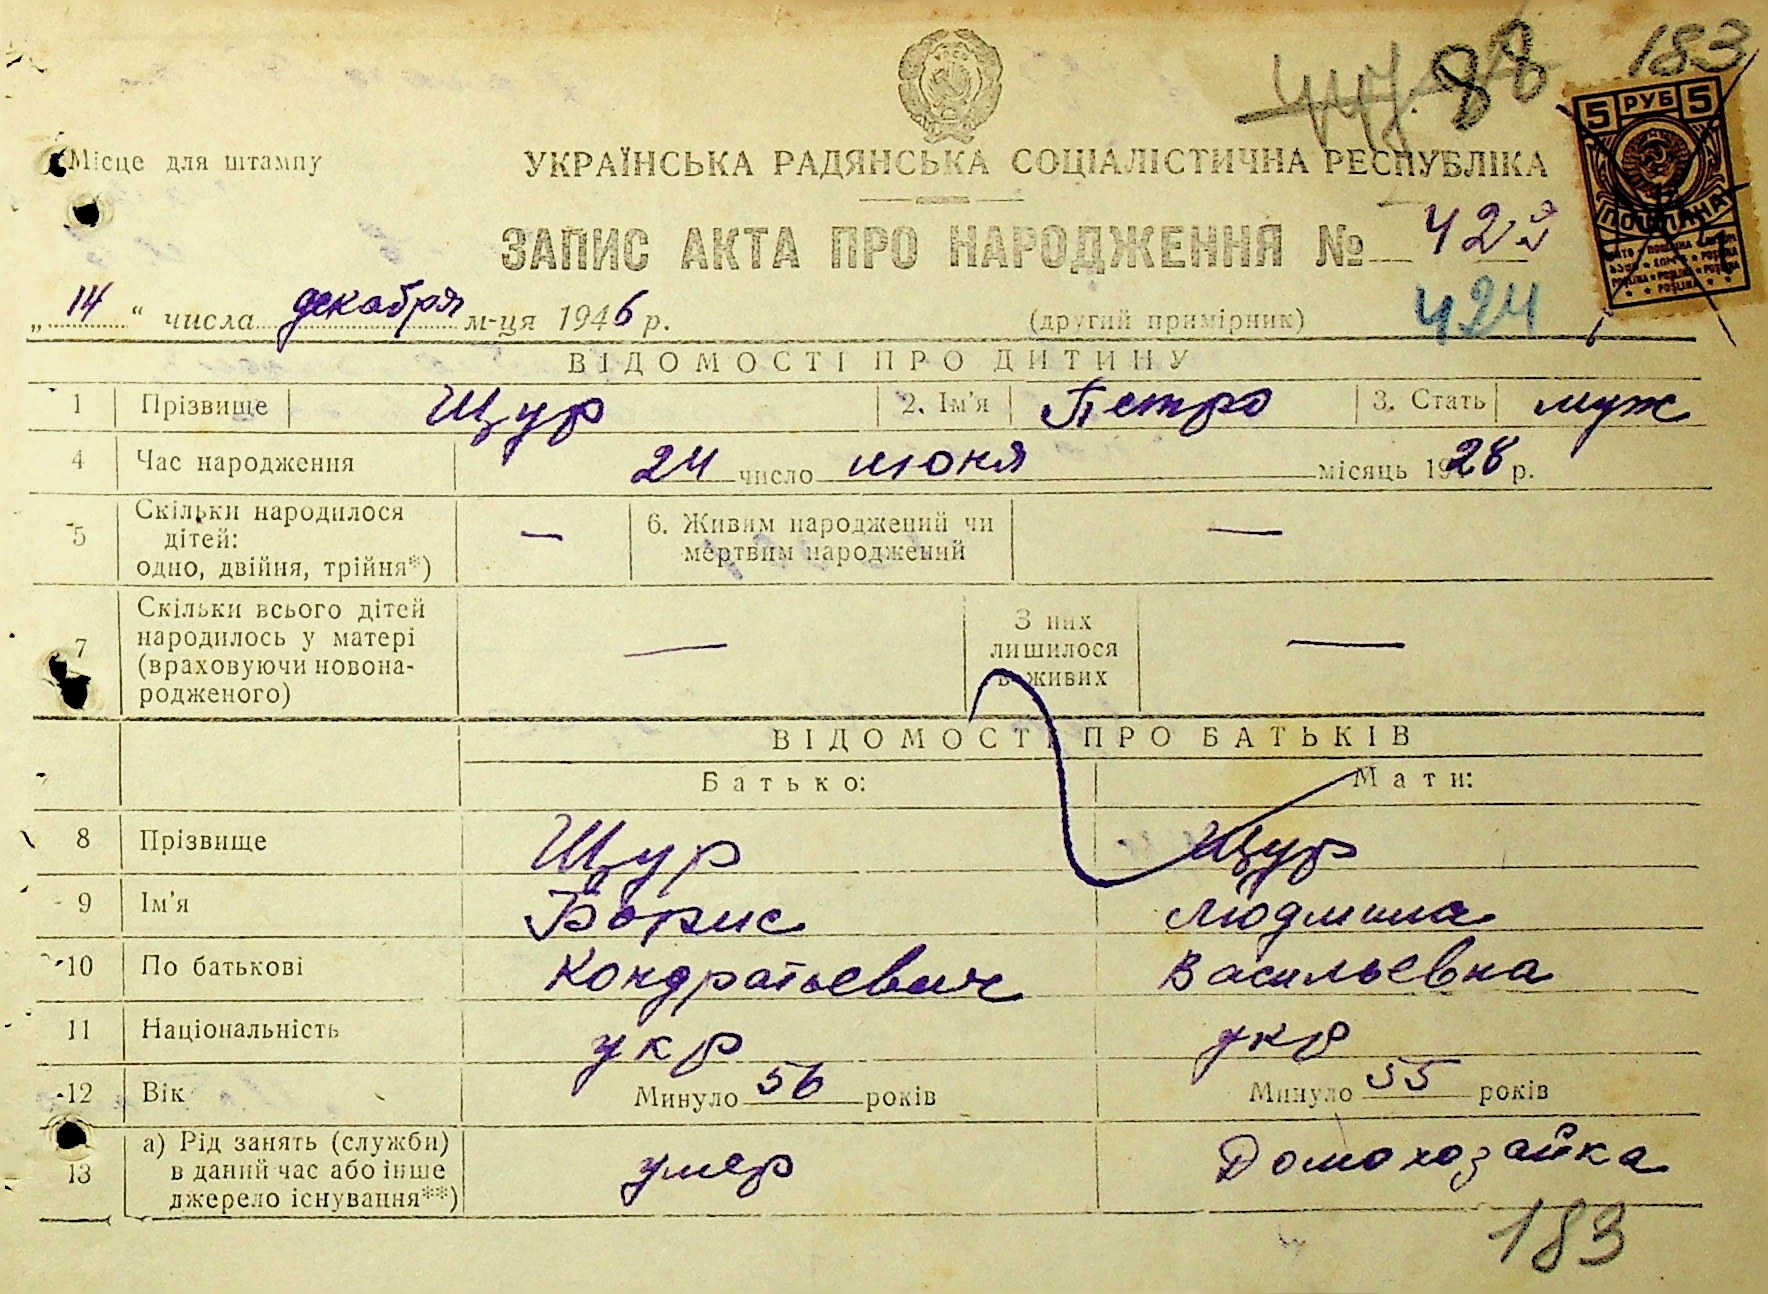 183
447. 88
5 РУБ 5
ПОШЛИНА
Місце для штампу
УКРАЇНСЬКА РАДЯНСЬКА СОЦІАЛІСТИЧНА РЕСПУБЛІКА
ЗАПИС АКТА ПРО НАРОДЖЕННЯ №
424
„14“ числа декабря м-ця 1946 р. (другий примірник)
ВІДОМОСТІ ПРО ДИТИНУ
1 Прізвище Щур 2. Ім'я Петро 3. Стать муж
4 Час народження 24 число июня місяць 1928 р.
5 Скільки народилося дітей: одно, двійня, трійня*) — 6. Живим народжений чи мертвим народжений —
7 Скільки всього дітей народилось у матері (враховуючи новонародженого) — З них лишилося в живих —
ВІДОМОСТІ ПРО БАТЬКІВ
Батько: Мати:
8 Прізвище Щур Щур
9 Ім'я Борис Людмила
10 По батькові Кондратьевич Васильевна
11 Національність укр укр
12 Вік Минуло 56 років Минуло 55 років
13 а) Рід занять (служби) в даний час або інше джерело існування**) умер Домохозайка
183